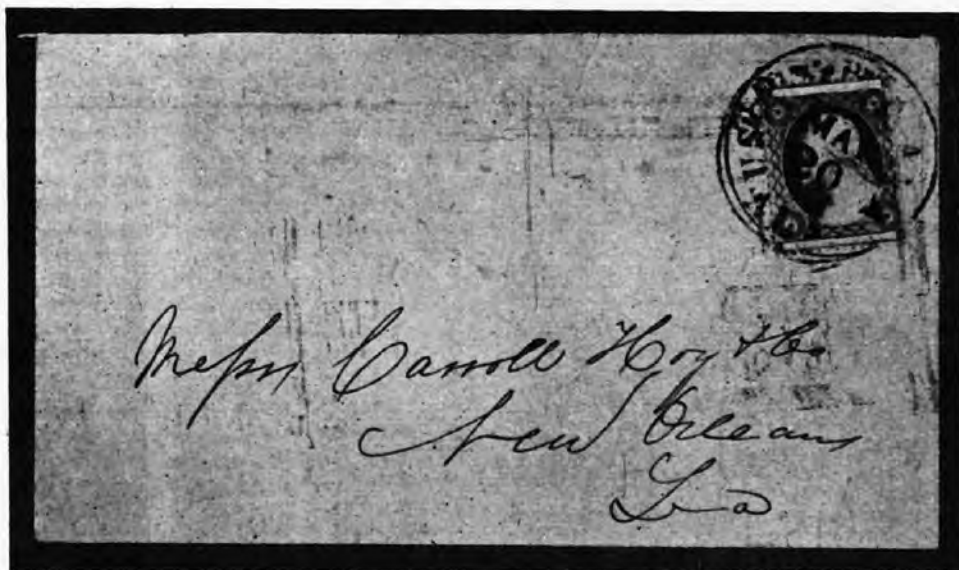 MA
20
Messrs Carroll Hoy & Co
New Orleans
La